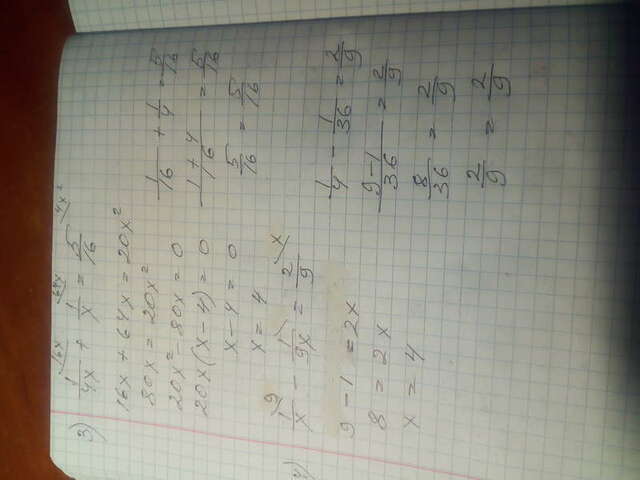 3) 1/4x + 1/x = 5/16
16x 64x 4x²
16x + 64x = 20x²
80x = 20x²
20x² - 80x = 0
20x(x - 4) = 0
x - 4 = 0
x = 4
1/16 + 1/4 = 5/16
(1 + 4)/16 = 5/16
5/16 = 5/16
4) 1/x - 1/9x = 2/9
9 x
9 - 1 = 2x
8 = 2x
x = 4
1/4 - 1/36 = 2/9
(9 - 1)/36 = 2/9
8/36 = 2/9
2/9 = 2/9